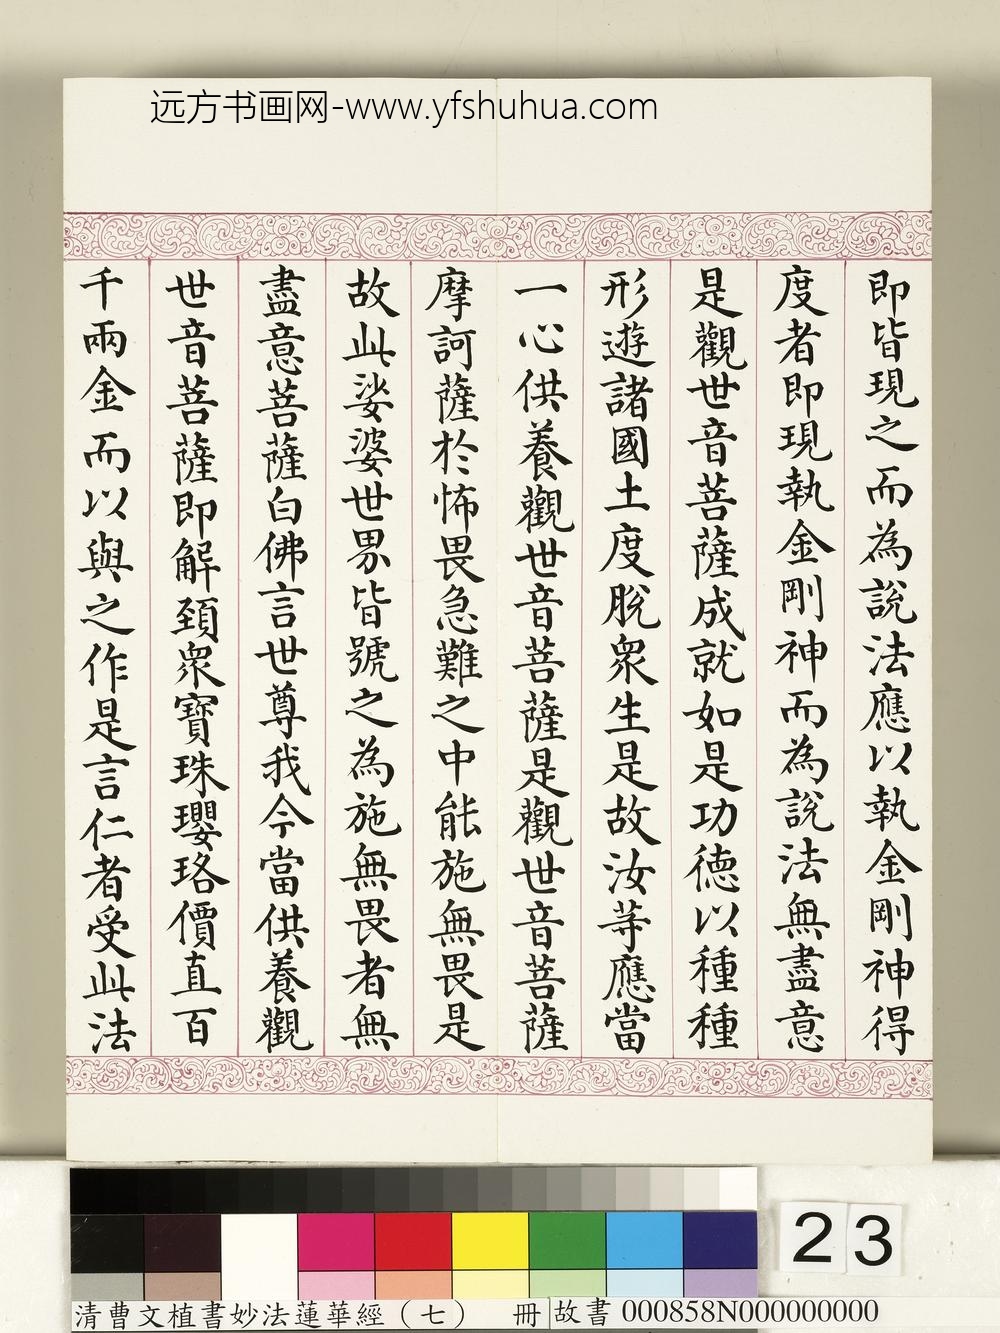 远方书画网-www.yfshuhua.com
即皆現之而為說法應以執金剛神得
度者即現執金剛神而為說法無盡意
是觀世音菩薩成就如是功德以種種
形遊諸國土度脫眾生是故汝等應當
一心供養觀世音菩薩是觀世音菩薩
摩訶薩於怖畏急難之中能施無畏是
故此娑婆世界皆號之為施無畏者無
盡意菩薩白佛言世尊我今當供養觀
世音菩薩即解頸眾寶珠瓔珞價直百
千兩金而以與之作是言仁者受此法
23
清曹文植書妙法蓮華經（七） 冊 故書 000858N000000000